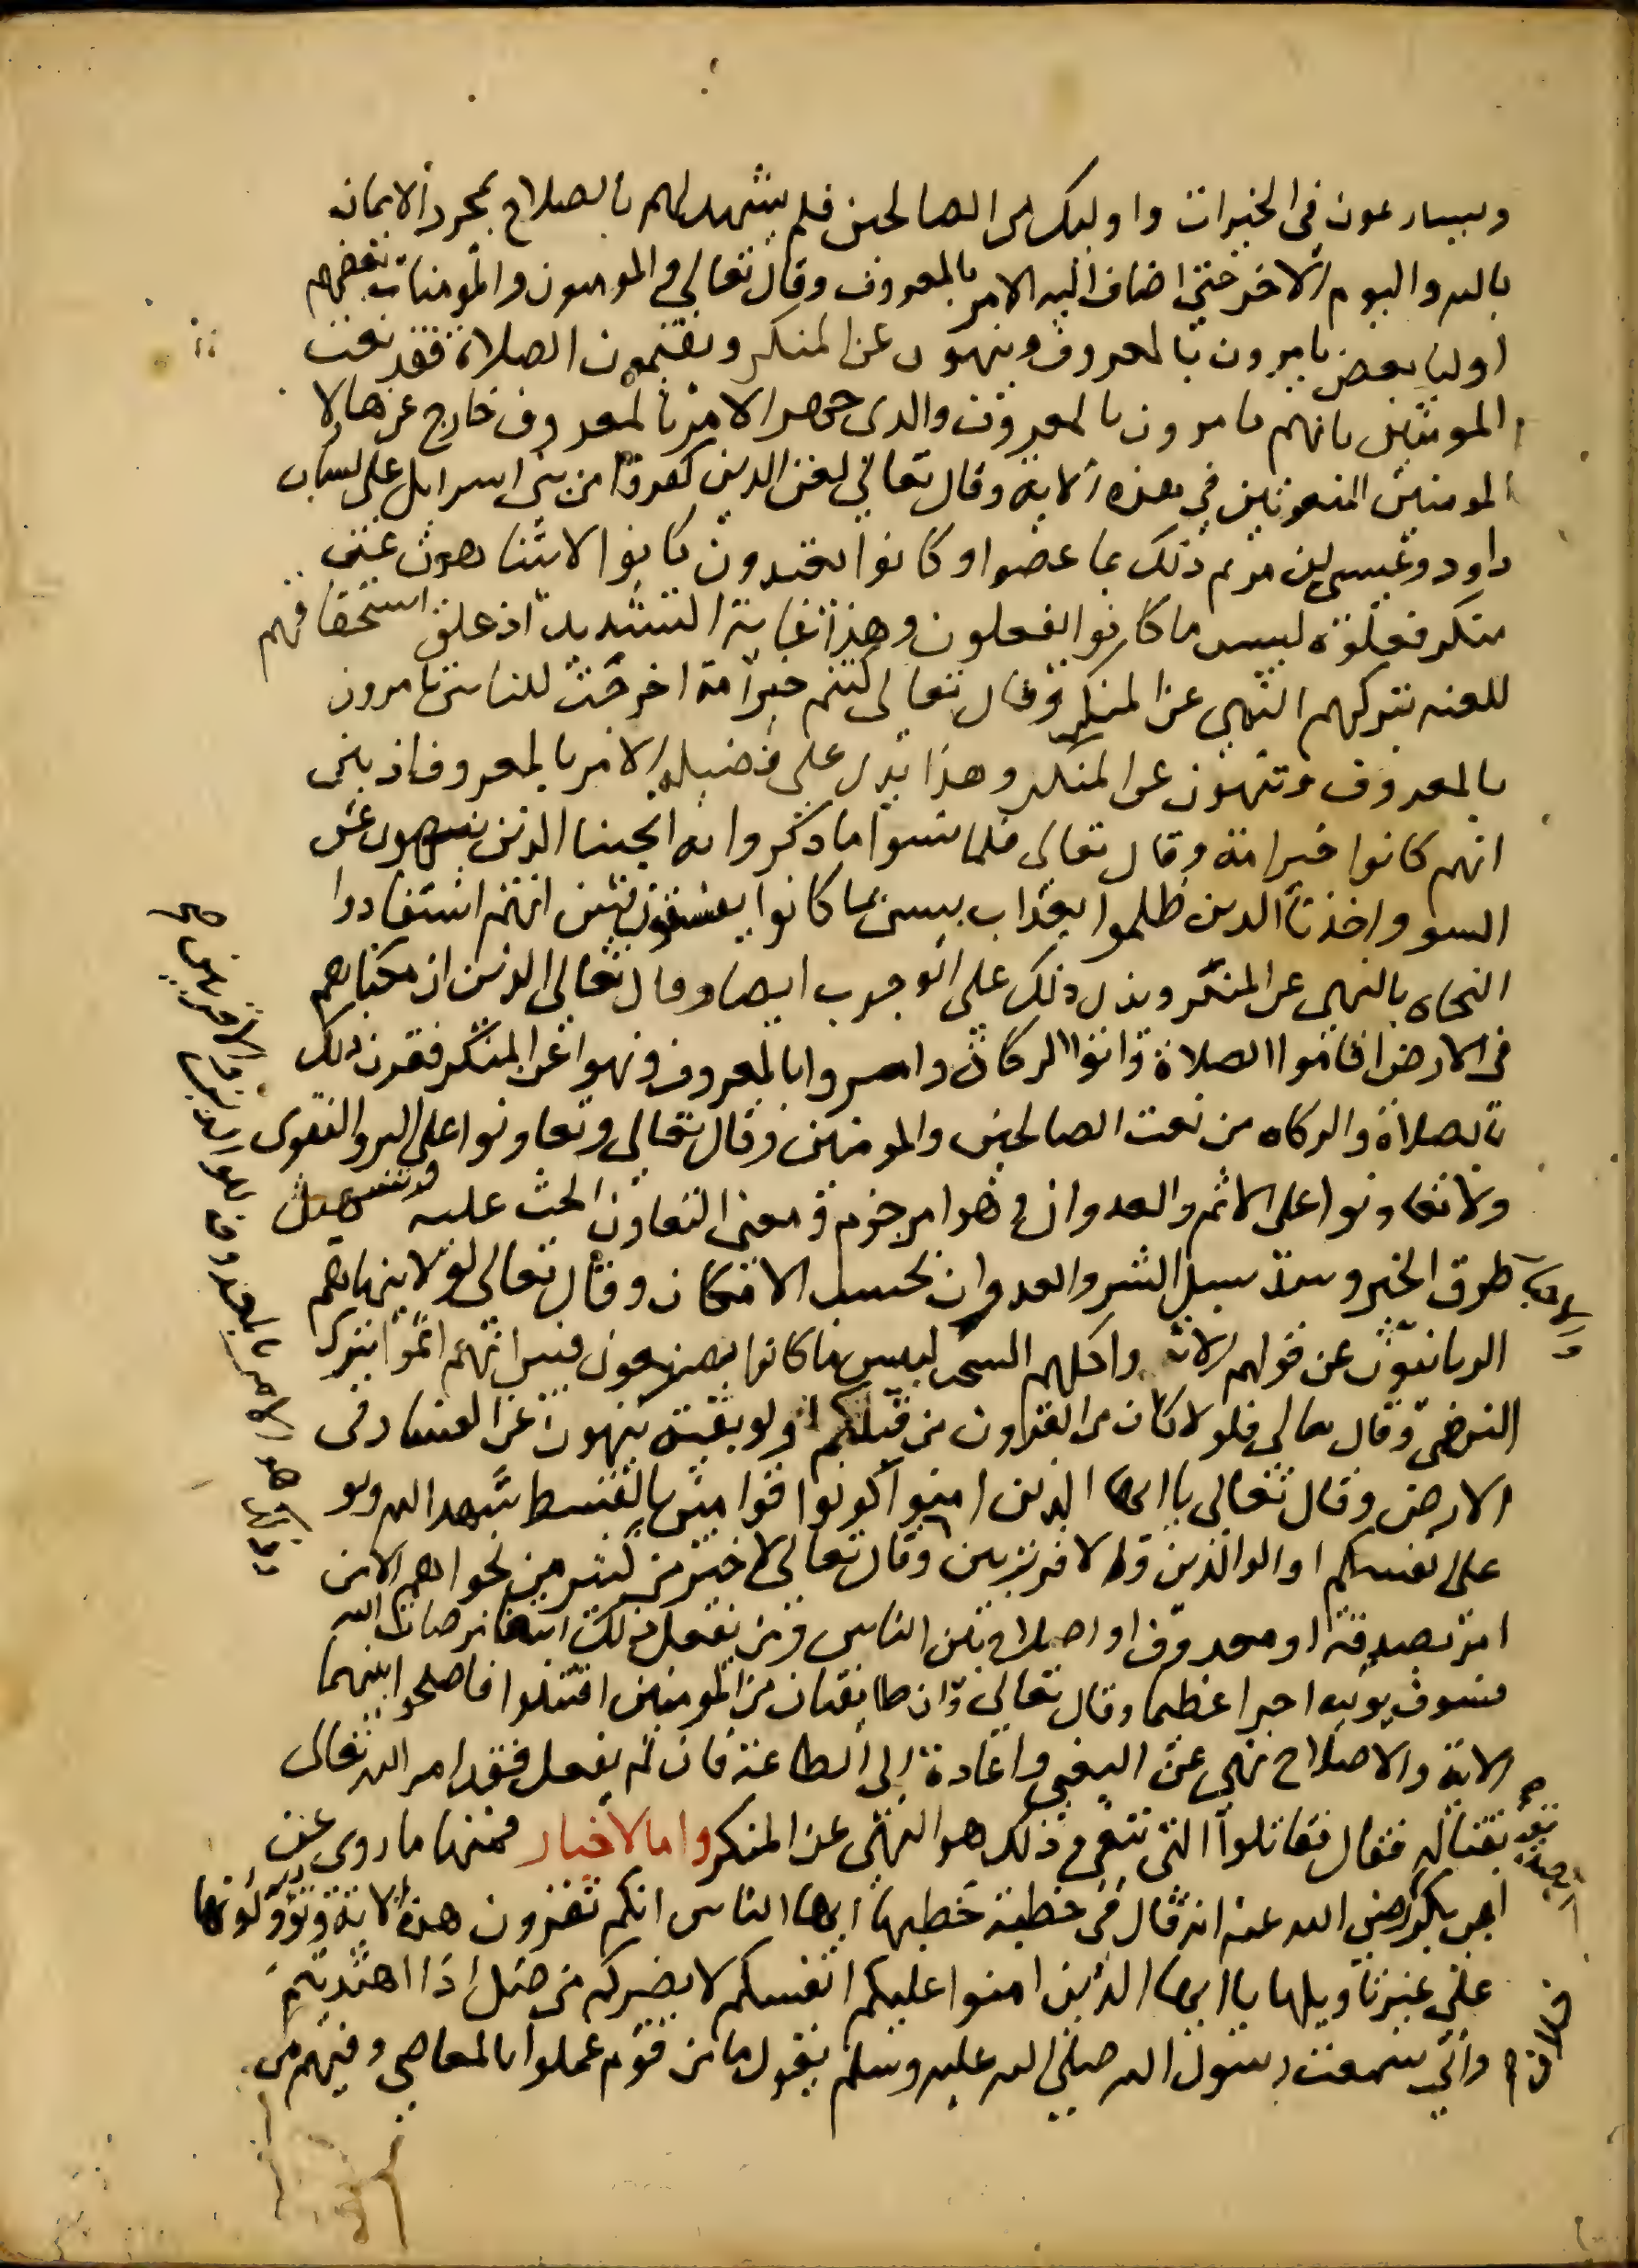 ويسارعون في الخيرات واوليك من الصالحين فلم يشهد لهم بالصلاح بمجرد الايمان
بالله واليوم الاخر حتى اضاف اليه الامر بالمعروف وقال تعالى والمومنون والمومنات بعضهم
اوليا بعض يامرون بالمعروف وينهون عن المنكر ويقيمون الصلاة فقد نعت
المومنين بانهم يامرون بالمعروف والذي هجر الامر بالمعروف خارج عن هاولا
المومنين المنعوتين في هذه الاية وقال تعالى لعن الذين كفروا من بني اسرايل على لسان
داود وعيسى ابن مريم ذلك بما عصوا وكانوا يعتدون كانوا لا يتناهون عن
منكر فعلوه لبيس ما كانوا يفعلون وهذا غاية التشديد اذ علق استحقاقهم
للعنه بتركهم النهي عن المنكر وقال تعالى كنتم خير امة اخرجت للناس تامرون
بالمعروف وتنهون عن المنكر وهذا يدل على فضيلة الامر بالمعروف اذ بين
انهم كانوا خير امة وقال تعالى فلما نسوا ما ذكروا به انجينا الذين ينهون عن
السو واخذنا الذين ظلموا بعذاب بييس بما كانوا يفسقون فبين انهم استفادوا
النجاه بالنهي عن المنكر ويدل ذلك على الوجوب ايضا وقال تعالى الذين ان مكناهم
في الارض اقاموا الصلاة واتوا الزكاة وامروا بالمعروف ونهوا عن المنكر فقرن ذلك
بالصلاة والزكاه من نعت الصالحين والمومنين وقال تعالى وتعاونوا على البر والتقوى
ولا تعاونوا على الاثم والعدوان وهو امر جزم ومعنى التعاون الحث عليه وتسهيل
طرق الخير وسد سبيل الشر والعدوان بحسب الامكان وقال تعالى لولا ينهاهم
الربانيون عن قولهم الاثم واكلهم السحت لبيس ما كانوا يصنعون فبين انهم اثموا بترك
النهي وقال تعالى فلولا كان من القرون من قبلكم اولو بقية ينهون عن الفساد في
الارض وقال تعالى يا ايها الذين امنوا كونوا قوامين بالقسط شهدا لله ولو
على انفسكم او الوالدين والاقربين وقال تعالى لا خير في كثير من نجواهم الا من
امر بصدقة او معروف او اصلاح بين الناس ومن يفعل ذلك ابتغا مرضات الله
فسوف يوتيه اجرا عظيما وقال تعالى وان طايفتان من المومنين اقتتلوا فاصلحوا بينهما
الاية والاصلاح نهي عن البغي واعادة الى الطاعة فان لم يفعل فقد امر الله تعالى
بقتاله فقال فقاتلوا التي تبغي وذلك هو النهي عن المنكر واما الاخبار فمنها ما روي عن
ابي بكر رضي الله عنه انه قال في خطبة خطبها ايها الناس انكم تقرون هذه الاية وتؤولونها
على غير تاويلها يا ايها الذين امنوا عليكم انفسكم لا يضركم من ضل اذا اهتديتم
واني سمعت رسول الله صلى الله عليه وسلم يقول ما من قوم عملوا بالمعاصي وفيهم من